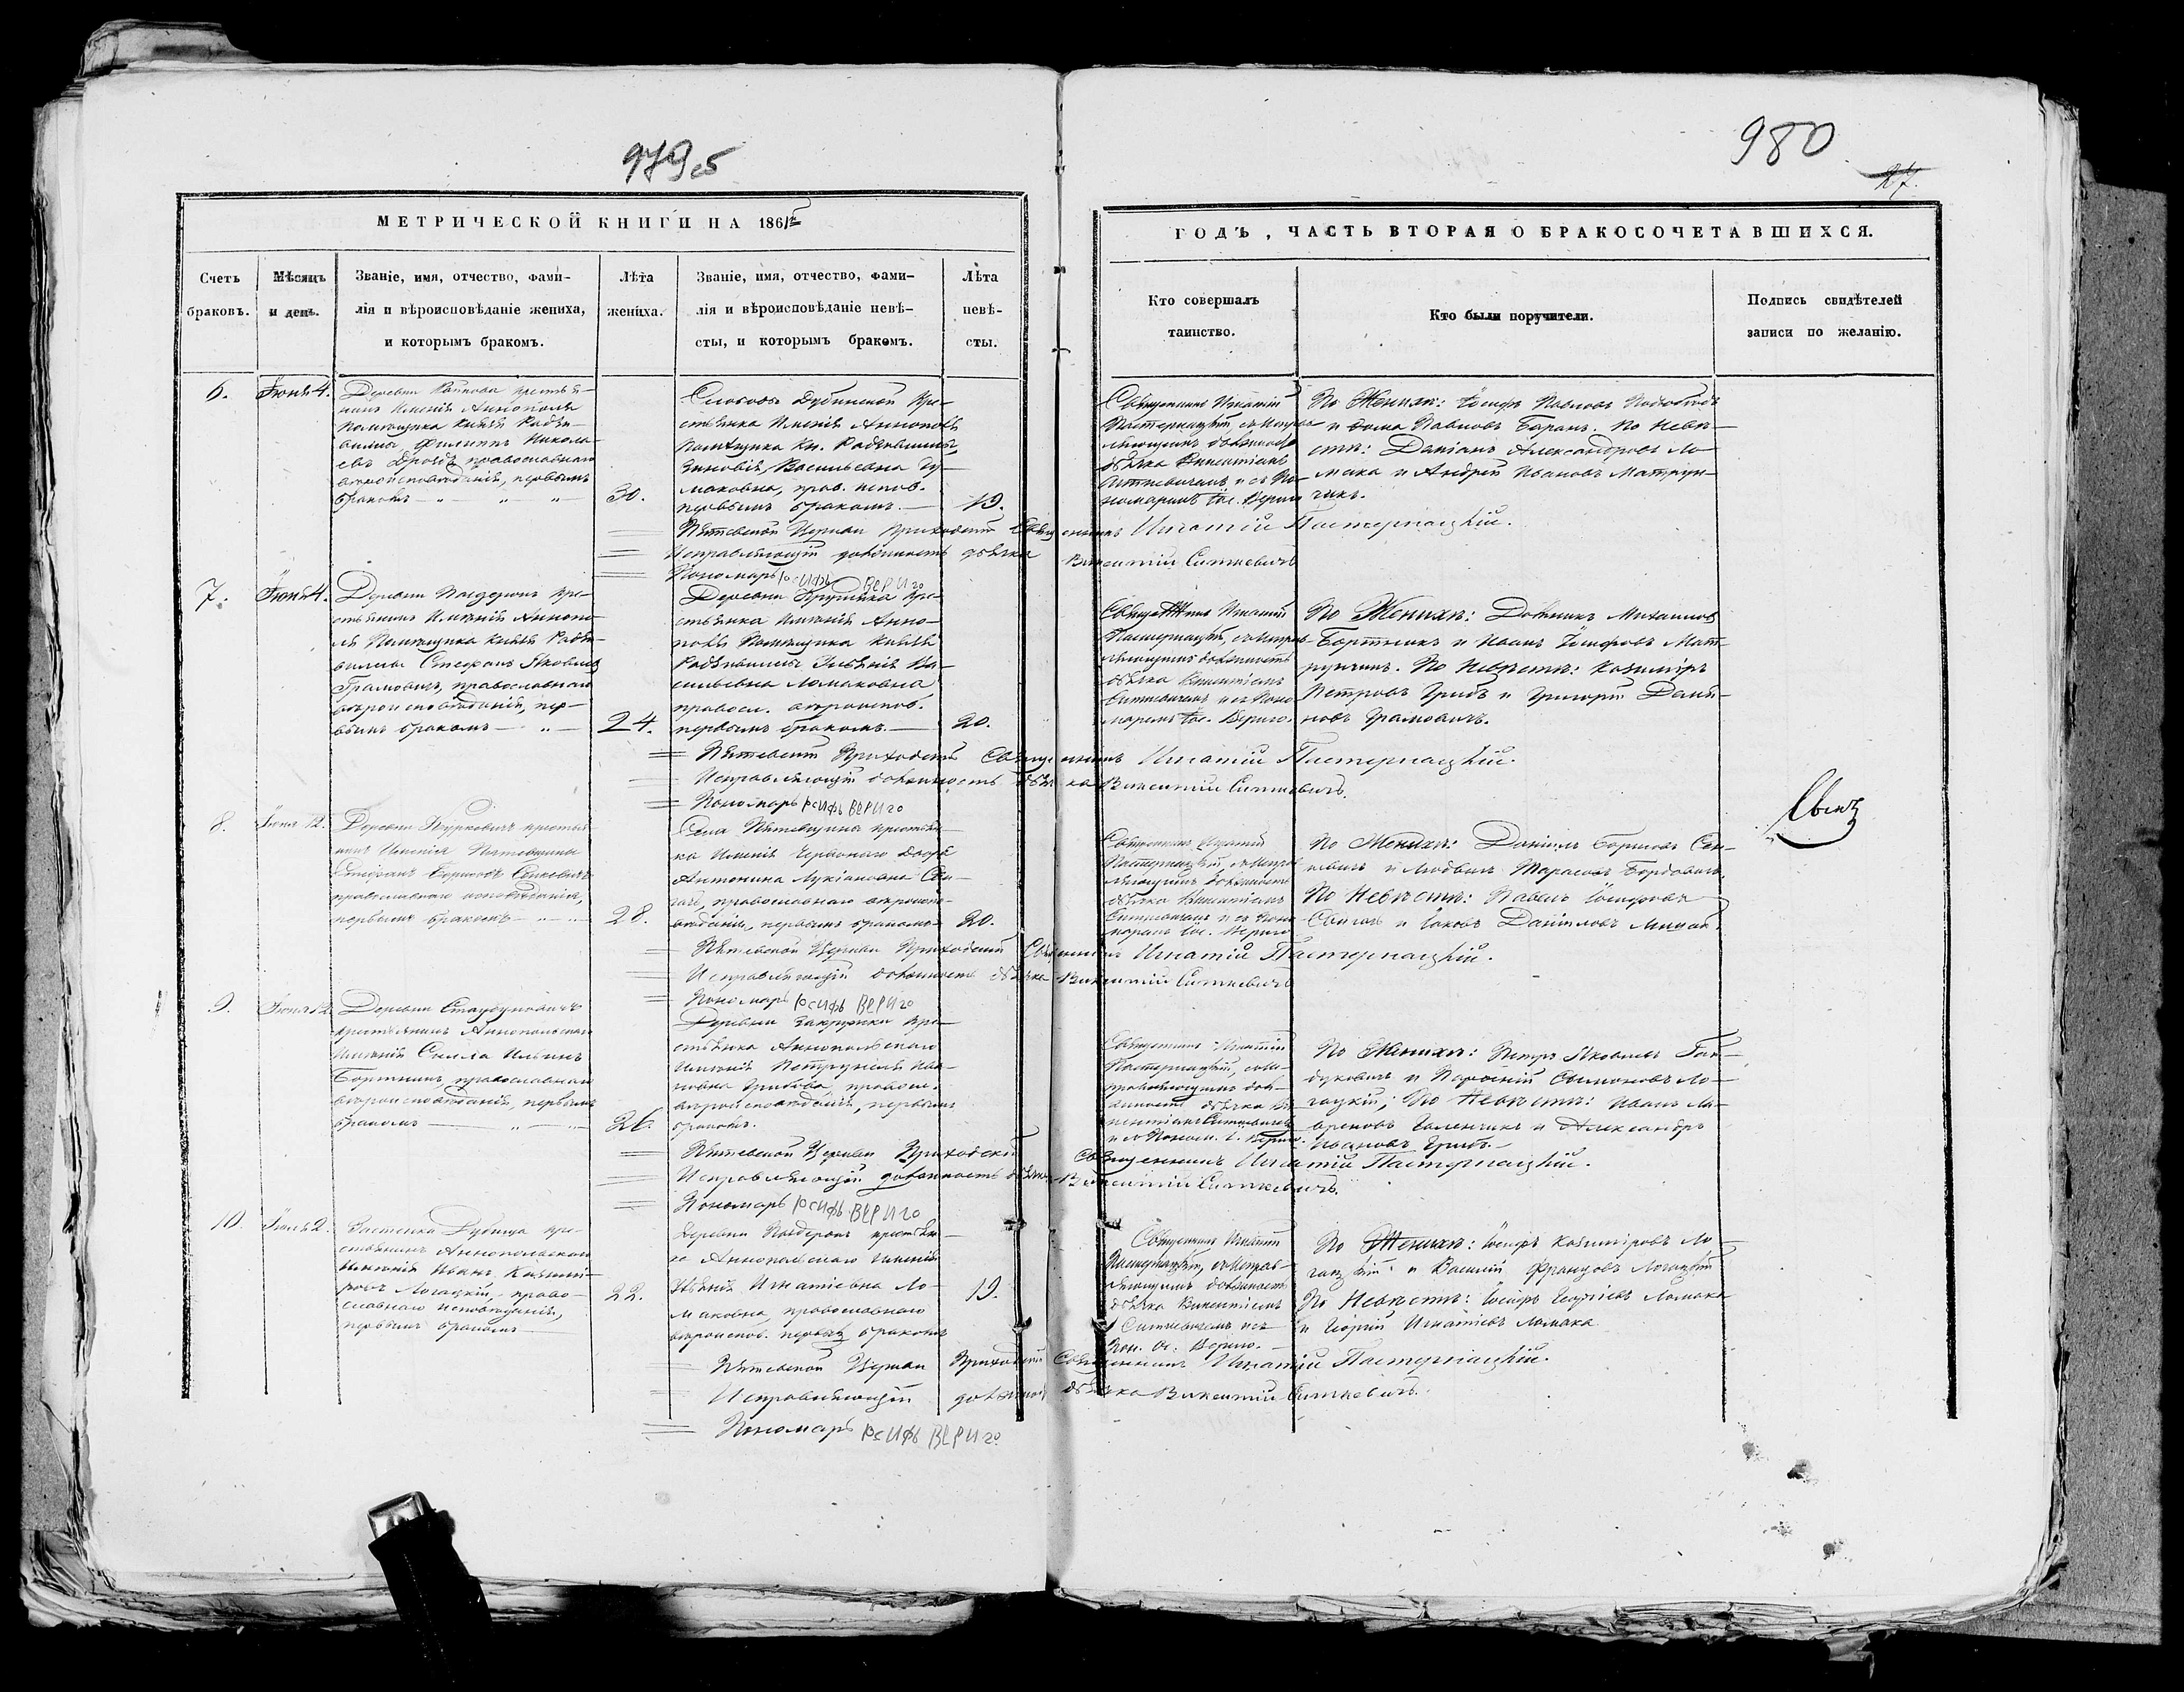 979об
980
27.
МЕТРИЧЕСКОЙ КНИГИ НА 1861й
ГОДЪ, ЧАСТЬ ВТОРАЯ О БРАКОСОЧЕТАВШИХСЯ.
Счетъ браковъ.
Мѣсяцъ и день.
Званіе, имя, отчество, фами-
лія и вѣроисповѣданіе жениха,
и которымъ бракомъ.
Лѣта
жениха.
Званіе, имя, отчество, фами-
лія и вѣроисповѣданіе невѣ-
сты, и которымъ бракомъ.
Лѣта
невѣ-
сты.
Кто совершалъ
таинство.
Кто были поручители.
Подпись свидѣтелей
записи по желанію.
6.
Іюня 4.
Деревни крестья-
нинъ имѣнія Аннополя
помѣщика Князя Радзи-
вилла Филиппъ Никола-
евъ Дроздъ православнаго
вѣроисповѣданія, первымъ
бракомъ
30.
Слободы Дубинской кре-
стьянка имѣнія Аннополя
помѣщика Кн. Радзивилла,
Зиновія Васильевна
прав. испов.
первымъ бракомъ.
19.
Священникъ Игнатій
Пастернацкій, съ исправ-
ляющимъ должность
дьячка Викентіемъ
Ситкевичемъ и съ По-
номаремъ Іос. Вериго
По Женихѣ: Іосифъ Павловъ
и Ѳома Павловъ Баранъ. По Невѣ-
стѣ: Даніилъ Александровъ Ло-
мака и Андрей Ивановъ Матрун-
чикъ.
Пятевской Церкви Приходскій Священникъ Игнатій Пастернацкій.
Исправляющій должность дьячка Викентій Ситкевичъ
Пономарь Іосифъ Вериго
7.
Іюня 4.
Деревни кре-
стьянинъ имѣнія Аннопо-
ля помѣщика Князя Радзи-
вилла Стефанъ Яковлевъ
Грамовичъ, православнаго
вѣроисповѣданія, пер-
вымъ бракомъ
24.
Деревни кре-
стьянка имѣнія Анно-
поля помѣщика Князя
Радзивилла Ва-
сильевна Ломаковна
правосл. вѣроиспов.
первымъ бракомъ.
20.
Священникъ Игнатій
Пастернацкій, съ исправ-
ляющимъ должность
дьячка Викентіемъ
Ситкевичемъ и съ Поно-
маремъ Іос. Вериго.
По Женихѣ: Михаиловъ
Бортникъ и Иванъ Іосифовъ Мат-
рунчикъ. По Невѣстѣ: Казиміръ
Петровъ Грибъ и Григорій Дані-
ловъ Грамовичъ.
Пятевскій Приходскій Священникъ Игнатій Пастернацкій.
Исправляющій должность дьячка Викентій Ситкевичъ.
Пономарь Іосифъ Вериго
8.
Іюня 12.
Деревни крестья-
нинъ имѣнія Пятевщины
Стефанъ Борисовъ Сенкевичъ
православнаго исповѣданія,
первымъ бракомъ
28.
Села Пятевщины крестьян-
ка имѣнія Червонаго Двора
Антонина Лукіановна
православнаго вѣроиспо-
вѣданія, первымъ бракомъ
20.
Священникъ Игнатій
Пастернацкій, съ исправ-
ляющимъ должность
дьячка Викентіемъ
Ситкевичемъ и съ Поно-
маремъ Іос. Вериго
По Женихѣ: Даніилъ Борисовъ Сен-
кевичъ и Людвигъ Тарасовъ
По Невѣстѣ: Павелъ Іосифовъ
и Іаковъ Даніиловъ
Пятевской Церкви Приходскій Священникъ Игнатій Пастернацкій.
Исправляющій должность дьячка Викентій Ситкевичъ
Пономарь Іосифъ Вериго
9.
Іюня 12.
Деревни
крестьянинъ Аннопольскаго
имѣнія Ильинъ
Бортникъ, православнаго
вѣроисповѣданія, первымъ
бракомъ
26.
Деревни Закружки кре-
стьянка Аннопольскаго
имѣнія Петрунеля Ива-
новна Грибова, правосл.
вѣроисповѣданія, первымъ
бракомъ.
Священникъ Игнатій
Пастернацкій, съ ис-
правляющимъ дол-
жность дьячка Ви-
кентіемъ Ситкевичемъ
и съ Поном. І. Вериго.
По Женихѣ: Петръ Яковлевъ Гай-
дукевичъ и Сымоновъ Ло-
гацкій; По Невѣстѣ: Иванъ Ла-
вреновъ и Александръ
Ивановъ Грибъ.
Пятевской Церкви Приходскій Священникъ Игнатій Пастернацкій.
Исправляющій должность дьячка Викентій Ситкевичъ.
Пономарь Іосифъ Вериго
10.
Іюля 2.
Застенка Дубица кре-
стьянинъ Аннопольскаго
имѣнія Иванъ Казими-
ровъ Логацкій, право-
славнаго исповѣданія,
первымъ бракомъ
22.
Деревни крестьян-
ка Аннопольскаго имѣнія
Игнатіевна Ло-
маковна, православнаго
вѣроиспов. первымъ бракомъ
19.
Священникъ Игнатій
Пастернацкій, съ исправ-
ляющимъ должность
дьячка Викентіемъ
Ситкевичемъ и съ
Пон. Ос. Вериго.
По Женихѣ: Іосифъ Казиміровъ Ло-
гацкій и Василій Францовъ Логацкій
По Невѣстѣ: Іосифъ Георгіевъ Ломака
и Георгій Игнатіевъ Ломака
Пятевской Церкви Приходскій Священникъ Игнатій Пастернацкій.
Исправляющій должность дьячка Викентій Ситкевичъ.
Пономарь Іосифъ Вериго